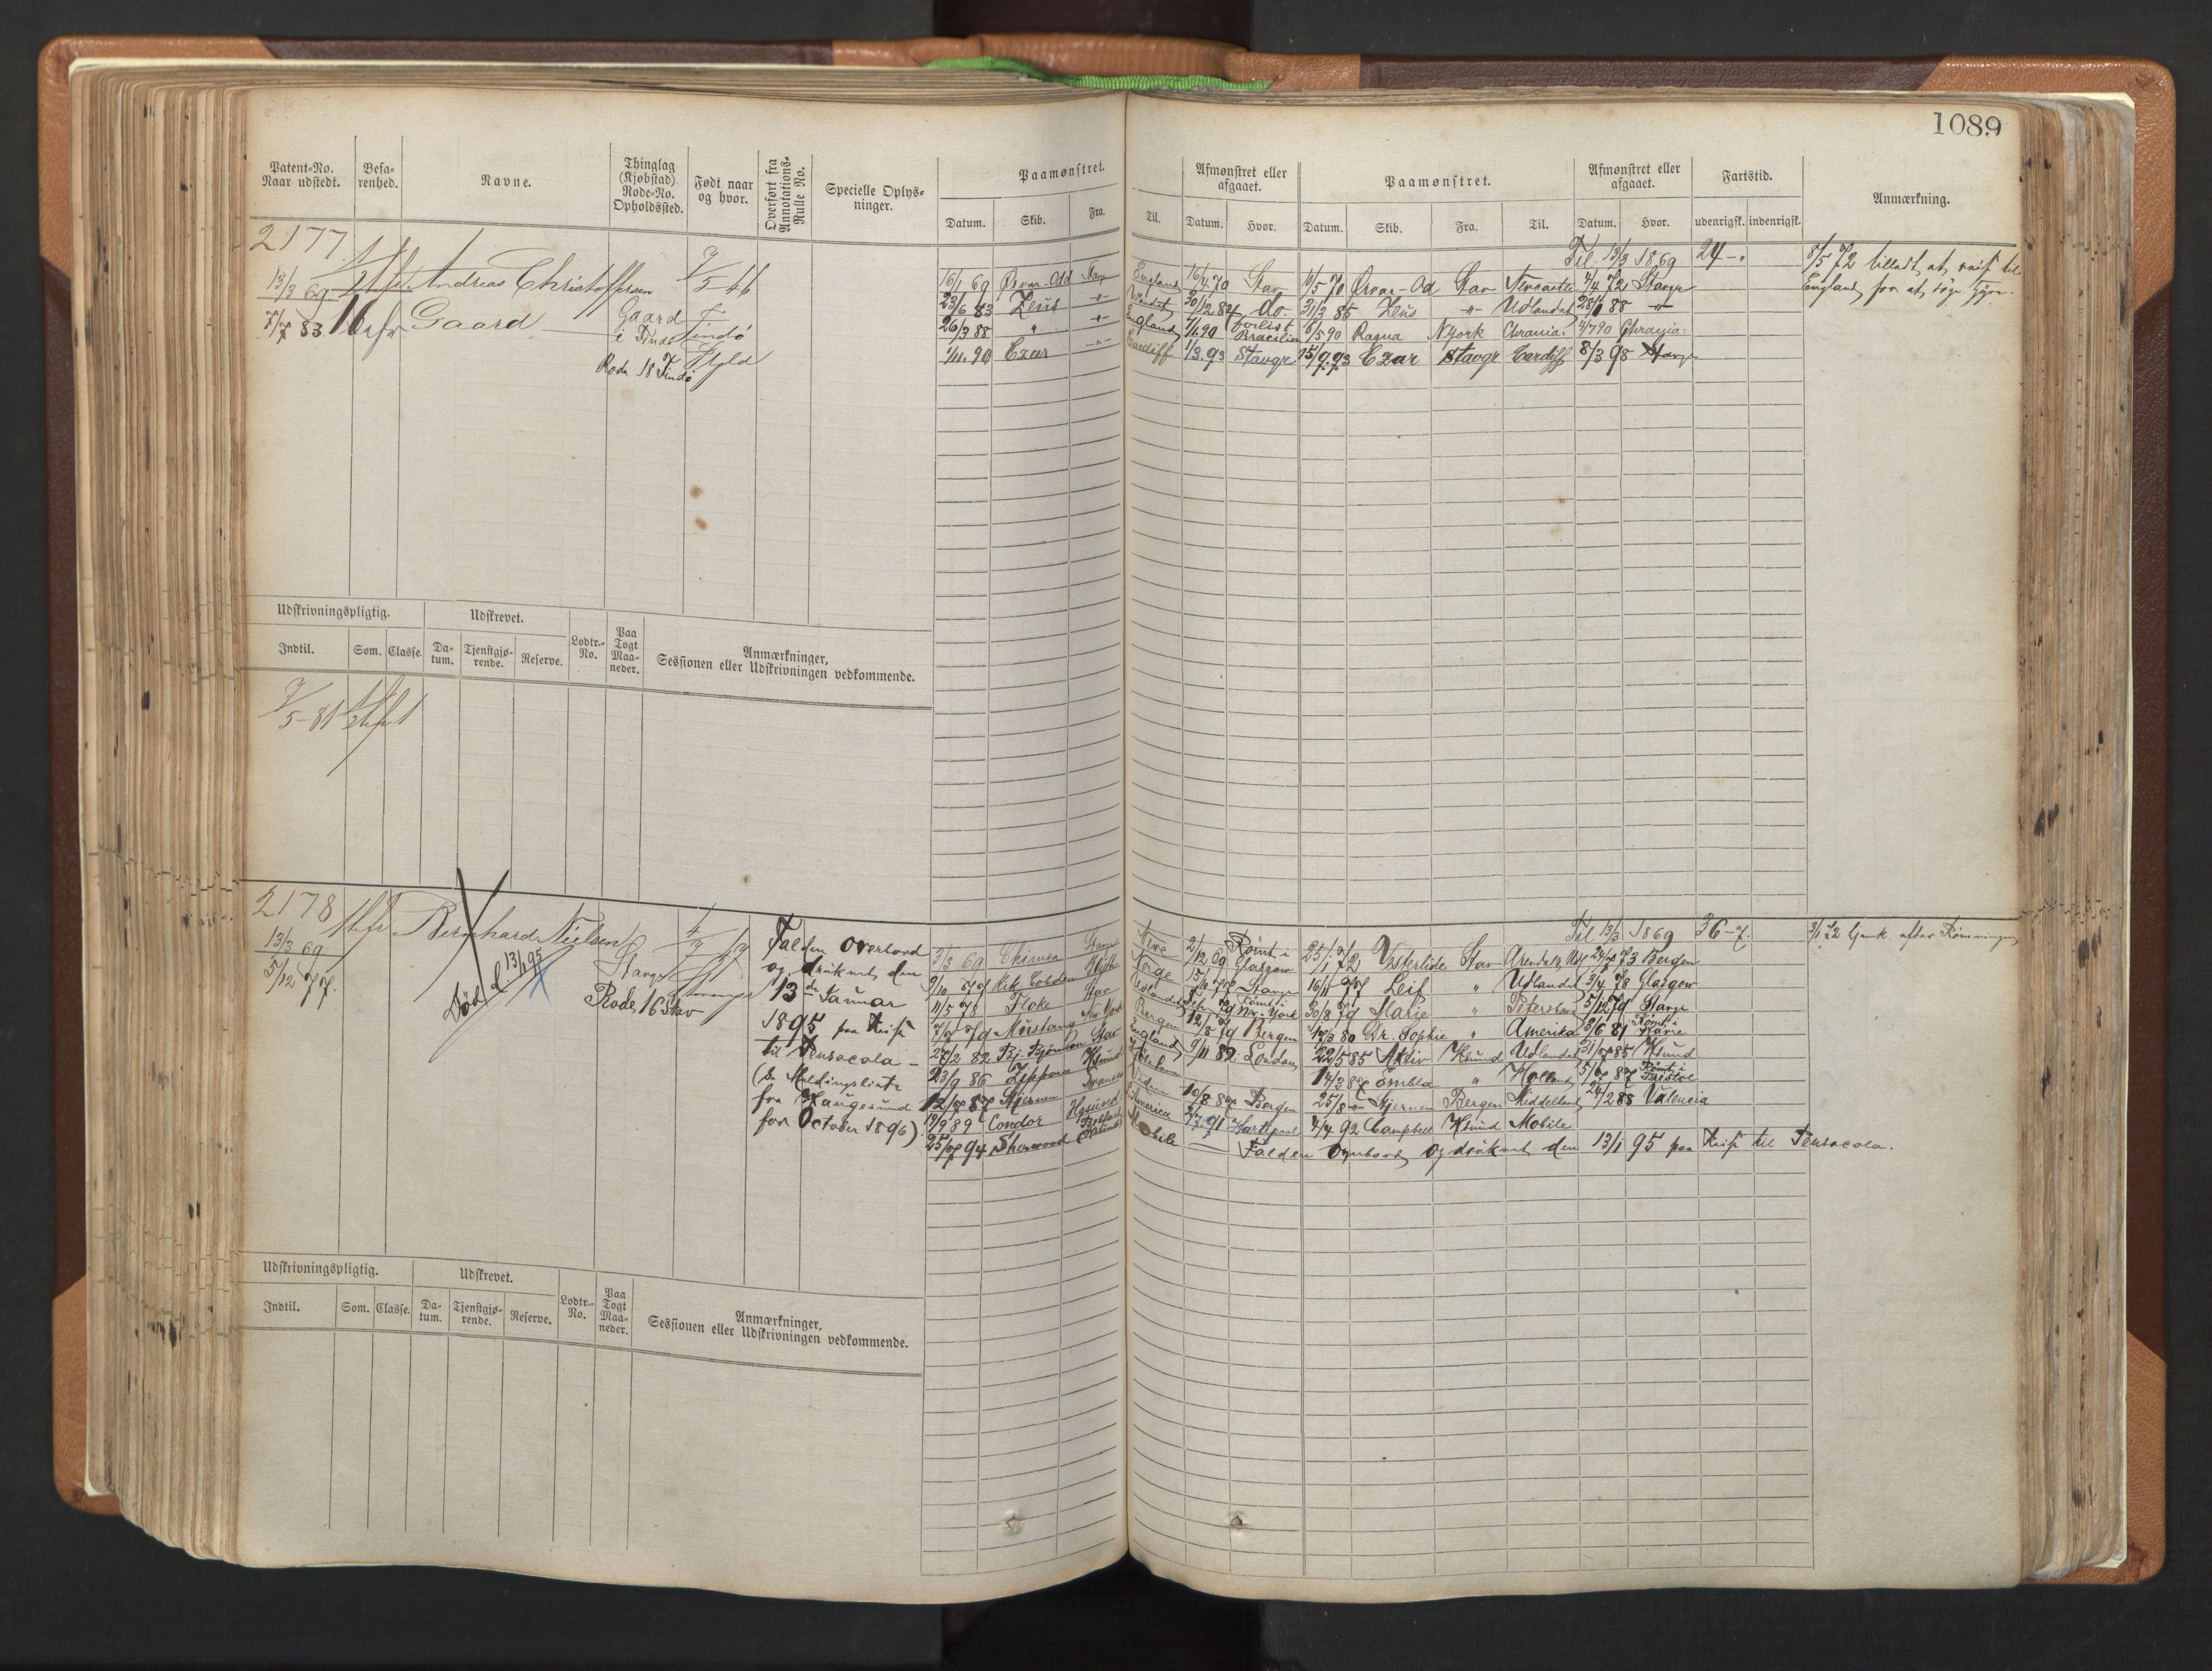 1089
Patent-No. Naar udstedt.
Befarenhed.
Navne.
Thinglag (Kjøbstad). Rode-No. Opholdssted.
Født naar og hvor.
Overført fra Annotations-Rulle No.
Specielle Oplysninger.
Paamønstret.
Datum. Skib. Fra. Til.
Afmønstret eller afgaaet.
Datum. Hvor.
Paamønstret.
Datum. Skib. Fra. Til.
Afmønstret eller afgaaet.
Datum. Hvor.
Fartstid.
udenrigsk. indenrigsk.
Anmærkning.
2177
13/3 69 Andreas Christoffersen
7/7 83 Gaard
Gaard
i Findö
Rode 18 Findö
Findö
Til 13/3 1869 24
16/1 69 Ørvar-Odd Stavgr England 16/4 70 Stav 10/5 70 Ørvar-Od Stav Newcastle 4/4 72 Stavgr
23/6 83 Zeus 30/12 84 do 31/3 85 Zeus Udlandet 28/1 88
26/3 88 England 1/1 90 forlist Brasilien 6/5 90 Ragna NYork Chrania 4/7 90
1/11 90 Czar Cardiff 1/3 93 Stavgr 15/9 93 Czar Stavgr Cardiff 8/3 98 Stavgr
5/5 72 tilladt at reise til
England for at søge Hyre.
Udskrivningspligtig.
Indtil. Som. Classe.
Udskrevet.
Datum. Tjenstgjørende. Reserve.
Lodtr.-No.
Paa Togt Maaneder.
Anmærkninger, Sessionen eller Udskrivningen vedkommende.
7/5-81
2178
13/3 69
5/12 77.
Bernhard Nielsen
Død d 13/1 95
Stavgr
Rode 16 Stav
Stavanger
Falden overbord
og druknet den
13de Januar
1895 paa Reise
til Pensacola -
(Se Meldingsliste
fra Haugesund
for October 1896)
Til 13/3 1869 36-7.
3/8 69 Chimea Stavgr 2/12 69 Rømt i Glasgow 25/1 72 Vesterlide Stav Arendal 73 Bergen
9/10 77 Rik Cobden Norge Stavgr 16/11 77 Leif Udlandet 3/4 78 Glasgow
11/5 78 Floke Stav Udlandet Rømt i New York 30/8 79 Marie Petersburg 5/12 79 Stavgr
79 Mustang New York Bergen 12/8 79 Bergen 80 Dr. Sophie Amerika 8/6 81 Rømt i
27/2 82 Bj. Bjørnson Stav England 9/11 82 London 22/5 85 Aktiv Ksund Udlandet 31/7 85 Ksund
23/9 86 Zippora Ksund 14/3 87 Embla Holland 5/7 87 Rømt i Bristol
12/7 87 Stjernen Swansea 10/8 87 Bergen 25/8 Stjernen Bergen Middelhavet 24/2 88 Valencia
17/9 89 Condor Hgsund America 91 Hartlepool 4/4 92 Campbell Ksund Mobile
25/7 94 Sherwood Mobile Falden overbord og druknet den 13/1 95 paa Reise til Pensacola.
Udskrivningspligtig.
Indtil. Som. Classe.
Udskrevet.
Datum. Tjenstgjørende. Reserve.
Lodtr.-No.
Paa Togt Maaneder.
Anmærkninger, Sessionen eller Udskrivningen vedkommende.